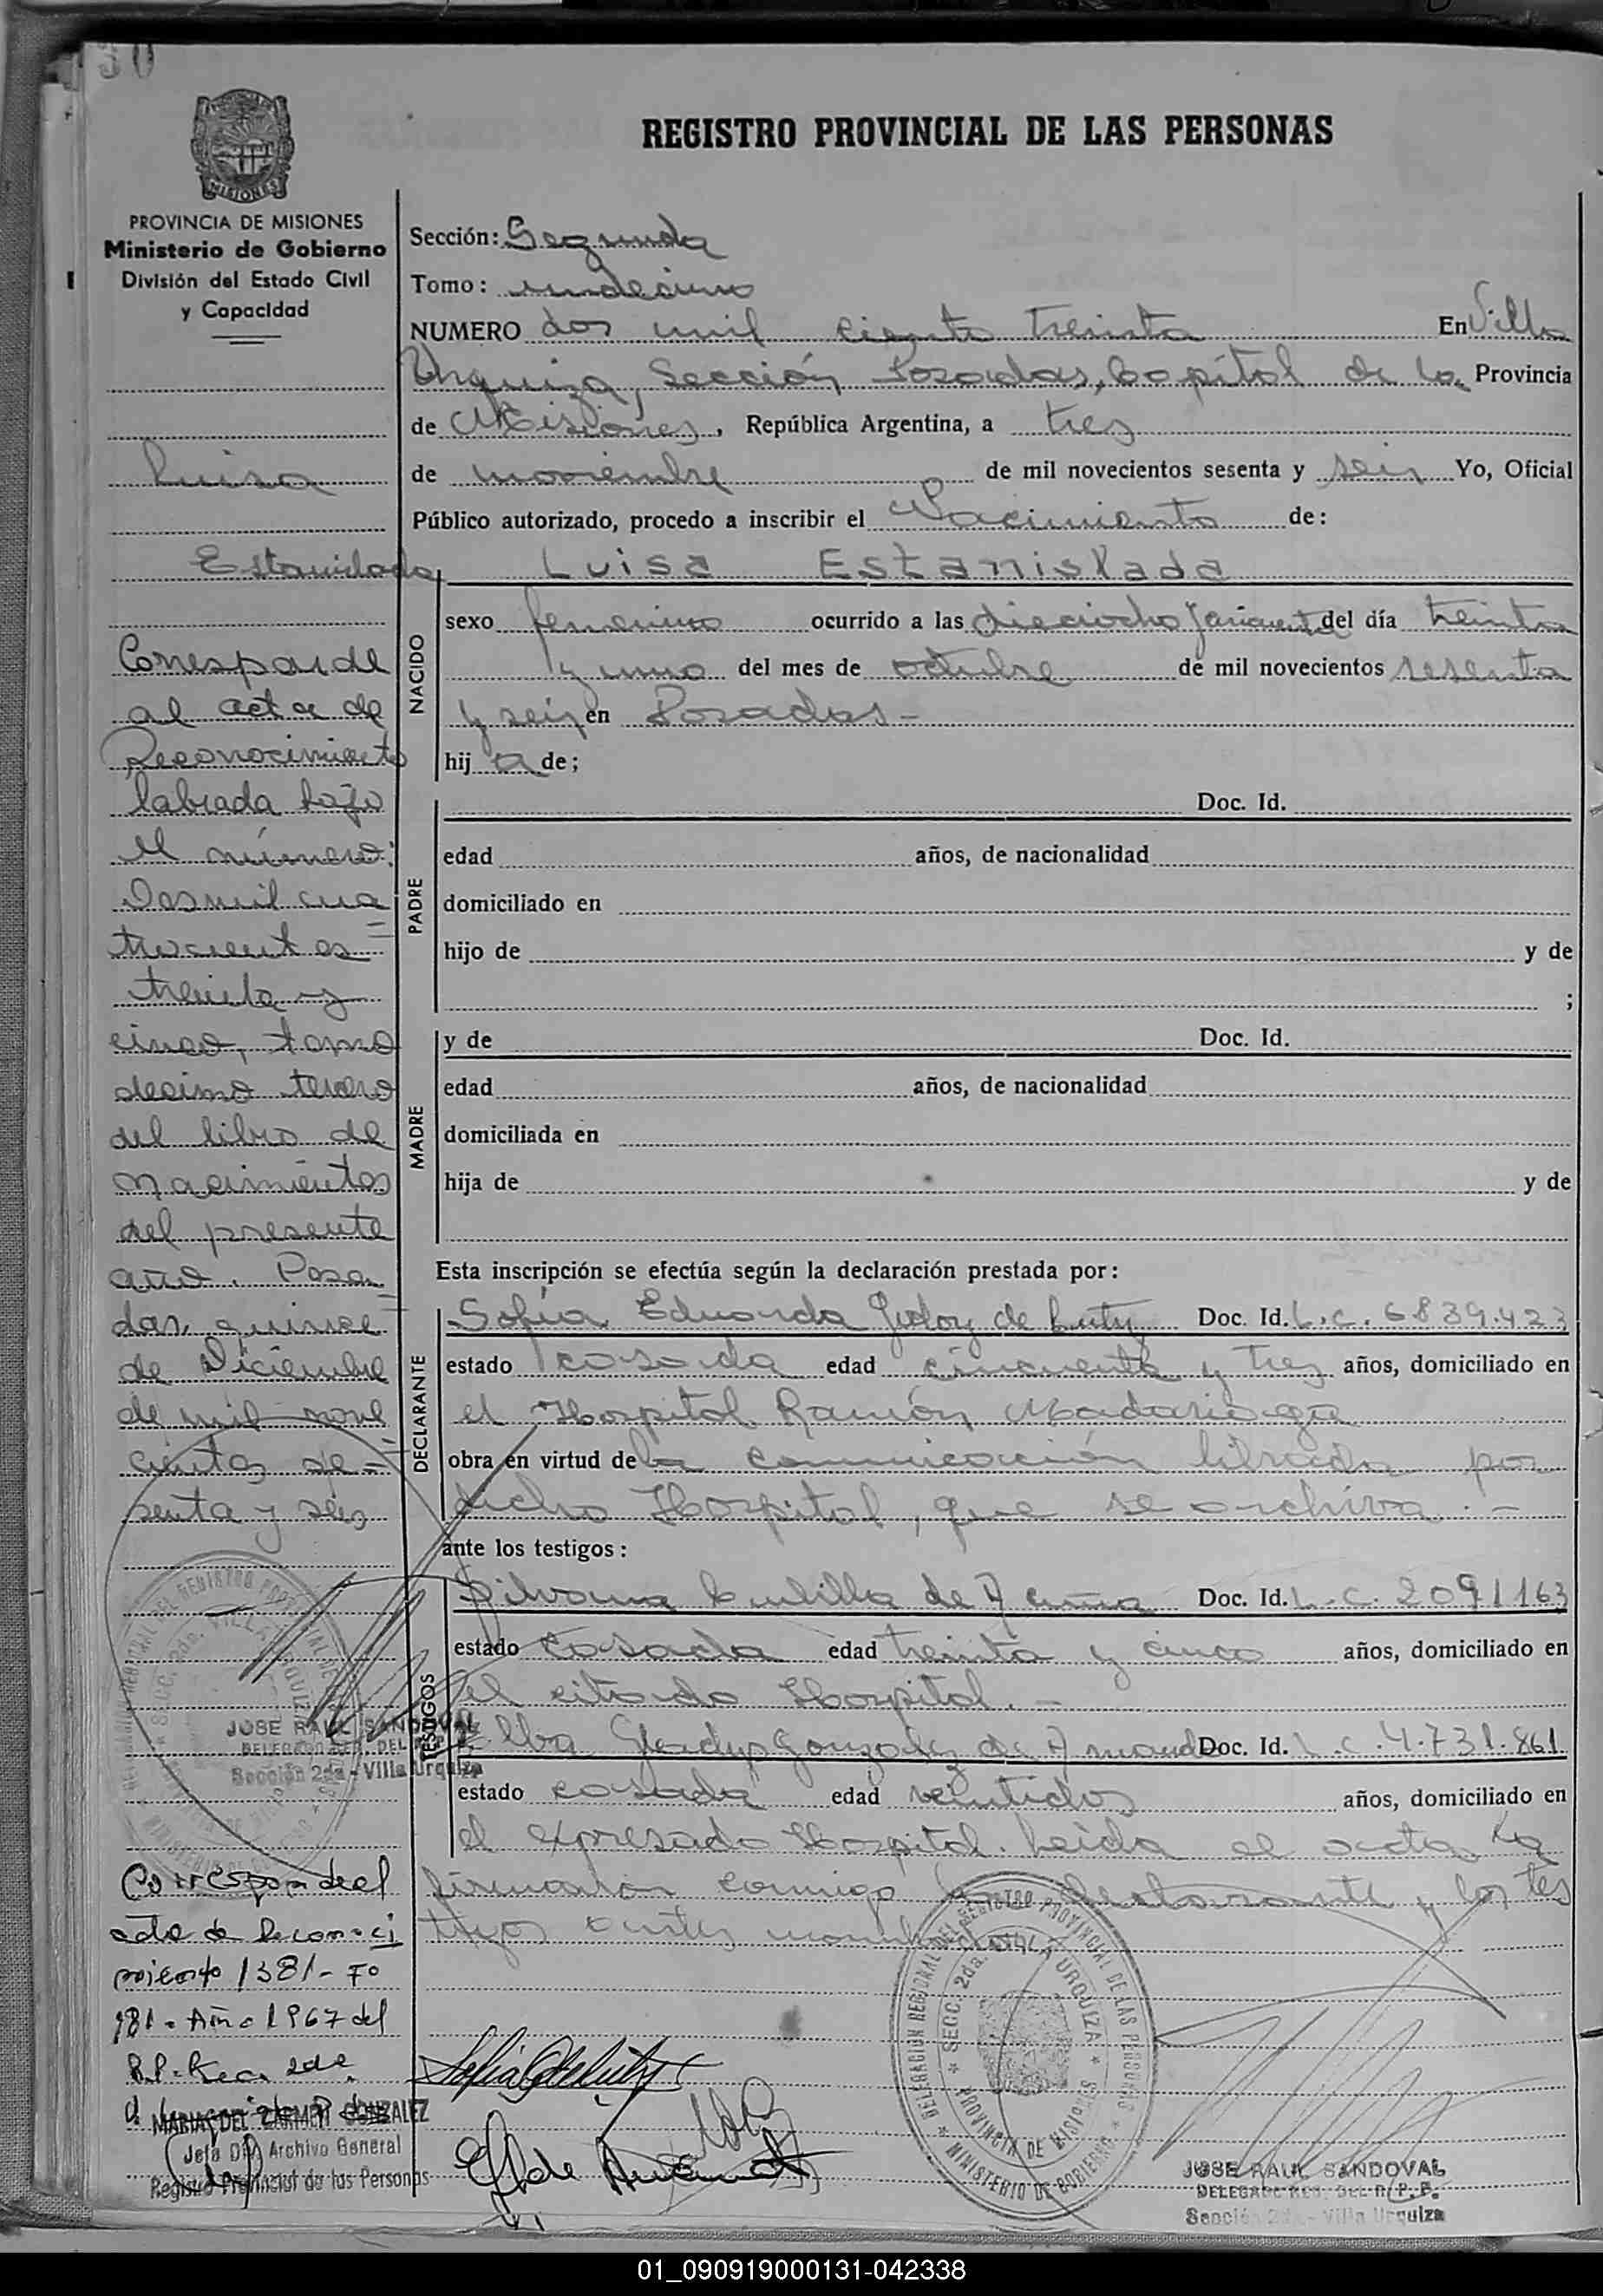 30
REGISTRO PROVINCIAL DE LAS PERSONAS
MISIONES
PROVINCIA DE MISIONES
Ministerio de Gobierno
División del Estado Civil
y Capacidad
Luisa
Estanislada
Corresponde
al acta de
Reconocimiento
labrada bajo
el número:
Dosmil cua
trocientos
treinta y
cinco, tomo
decimo tercero
del libro de
nacimientos
del presente
año. Posa
das, quince
de Diciembre
de mil nove
cientos se-
senta y seis
JOSE RAUL SANDOVAL
DELEGADO REG. DEL R.P.P.
Sección 2da - Villa Urquiza
Corresponde al
acta de Reconoci
miento 1381- Fº
181- Año 1967 del
R.P. Secc. 2da.
MARIA DEL CARMEN GONZALEZ
Jefa Archivo General
Registro Provincial de las Personas
Sección: Segunda
Tomo: undecimo
NUMERO dos mil ciento treinta En Villa
Urquiza, Sección Posadas, Capital de la Provincia
de Misiones, República Argentina, a tres
de noviembre de mil novecientos sesenta y seis Yo, Oficial
Público autorizado, procedo a inscribir el Nacimiento de:
Luisa Estanislada
NACIDO
sexo femenino ocurrido a las dieciocho y cincuenta del día treinta
y uno del mes de octubre de mil novecientos sesenta
y seis en Posadas-
hij a de;
PADRE
Doc. Id.
edad años, de nacionalidad
domiciliado en
hijo de y de
;
MADRE
y de Doc. Id.
edad años, de nacionalidad
domiciliada en
hija de y de
Esta inscripción se efectúa según la declaración prestada por:
DECLARANTE
Sofía Eduarda Godoy de Doc. Id. L.C. 6839.423
estado casada edad cincuenta y tres años, domiciliado en
el Hospital Ramón Madariaga
obra en virtud de la comunicación librada por
dicho Hospital, que se archiva.-
ante los testigos:
TESTIGOS
Silvana de Acuña Doc. Id. L.C. 2091163
estado casada edad treinta y cinco años, domiciliado en
el citado Hospital.-
Elba Gladys Gonzalez de Doc. Id. L.C. 4.731.861
estado casada edad veintidos años, domiciliado en
el expresado Hospital. Leída el acta la
firmaron conmigo la declarante y los tes
tigos antes nombrados
DELEGACION REGIONAL DEL REGISTRO PROVINCIAL DE LAS PERSONAS
SECC. 2da. VILLA URQUIZA
PROVINCIA DE MISIONES
MINISTERIO DE GOBIERNO
JOSE RAUL SANDOVAL
DELEGADO REG. DEL R.P.P.
Sección 2da - Villa Urquiza
01_090919000131-042338